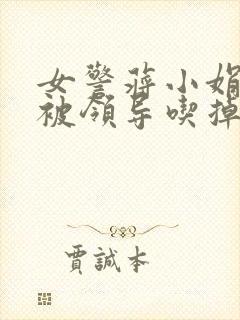 女警蒋小娟
被领导喫掉
贾誠本